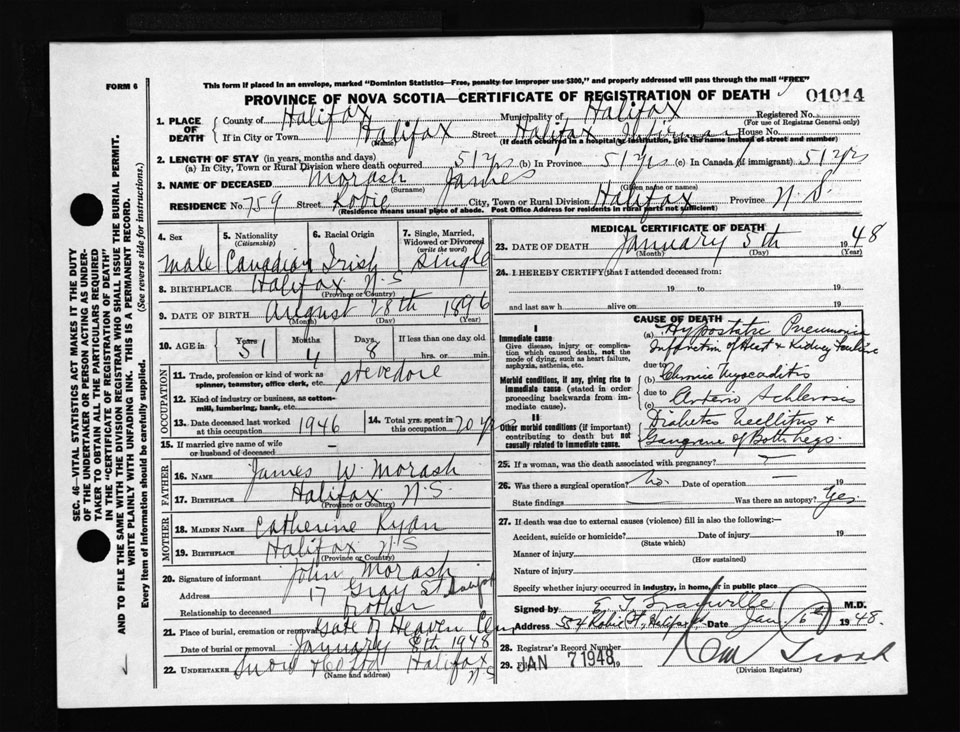 This form if placed in an envelope, marked "Dominion Statistics—Free, penalty for improper use $300," and properly addressed will pass through the mail "FREE"
FORM 6
PROVINCE OF NOVA SCOTIA—CERTIFICATE OF REGISTRATION OF DEATH 01014
1. PLACE OF DEATH { County of Halifax Municipality of Halifax Registered No.
(For use of Registrar General only)
If in City or Town Halifax Street Halifax Infirmary House No.
(Name) (If death occurred in a hospital or institution, give the name instead of street and number)
2. LENGTH OF STAY (in years, months and days)
(a) In City, Town or Rural Division where death occurred 51 yrs (b) In Province 51 yrs (c) In Canada (if immigrant) 51 yrs
3. NAME OF DECEASED Morash James
(Surname) (Given name or names)
RESIDENCE No. 759 Street Robie City, Town or Rural Division Halifax Province N.S.
(Residence means usual place of abode. Post Office Address for residents in rural parts not sufficient)
4. Sex male
5. Nationality (Citizenship) Canadian
6. Racial Origin Irish
7. Single, Married, Widowed or Divorced (write the word) Single
8. BIRTHPLACE Halifax N.S
(Province or Country)
9. DATE OF BIRTH August 28th 1896
(Month) (Day) (Year)
10. AGE in { Years 51 Months 4 Days 8 If less than one day old
hrs. or min.
OCCUPATION
11. Trade, profession or kind of work as spinner, teamster, office clerk, etc. stevedore
12. Kind of industry or business, as cotton-mill, lumbering, bank, etc.
13. Date deceased last worked at this occupation 1946
14. Total yrs. spent in this occupation 20 yrs
15. If married give name of wife or husband of deceased —
FATHER
16. NAME James W. Morash
17. BIRTHPLACE Halifax N.S.
(Province or Country)
MOTHER
18. MAIDEN NAME Catherine Ryan
19. BIRTHPLACE Halifax N.S
(Province or Country)
20. Signature of informant John Morash
Address 17 Gray St
Relationship to deceased brother
21. Place of burial, cremation or removal Gate of Heaven Cem.
Date of burial or removal January 8th 1948
22. UNDERTAKER Snow & Co Ltd Halifax N.S
(Name and address)
MEDICAL CERTIFICATE OF DEATH
23. DATE OF DEATH January 5th 1948
(Month) (Day) (Year)
24. I HEREBY CERTIFY that I attended deceased from:
19 to 19
and last saw h alive on 19
CAUSE OF DEATH
I
Immediate cause
Give disease, injury or complication which caused death, not the mode of dying, such as heart failure, asphyxia, asthenia, etc.
(a) Hypostatic Pneumonia
Infarction of Heart & Kidney
due to
Morbid conditions, if any, giving rise to immediate cause (stated in order proceeding backwards from immediate cause).
(b) Chronic Myocarditis
due to
(c) Arterio Schlerosis
II
Other morbid conditions (if important) contributing to death but not causally related to immediate cause.
Diabetes Mellitus &
Gangrene of Both Legs
25. If a woman, was the death associated with pregnancy? —
26. Was there a surgical operation? No. Date of operation — 19
State findings Was there an autopsy? Yes.
27. If death was due to external causes (violence) fill in also the following:—
Accident, suicide or homicide? Date of injury 19
(State which)
Manner of injury
(How sustained)
Nature of injury
Specify whether injury occurred in industry, in home, or in public place
Signed by M.D.
Address 554 Robie St, Halifax Date Jan 6th 1948.
28. Registrar's Record Number
29. JAN 7 1948 19
(Division Registrar)
SEC. 46—VITAL STATISTICS ACT MAKES IT THE DUTY
OF THE UNDERTAKER OR PERSON ACTING AS UNDER-
TAKER TO OBTAIN ALL THE PARTICULARS REQUIRED
IN THE "CERTIFICATE OF REGISTRATION OF DEATH"
AND TO FILE THE SAME WITH THE DIVISION REGISTRAR WHO SHALL ISSUE THE BURIAL PERMIT.
WRITE PLAINLY WITH UNFADING INK. THIS IS A PERMANENT RECORD.
Every item of information should be carefully supplied. (See reverse side for instructions.)